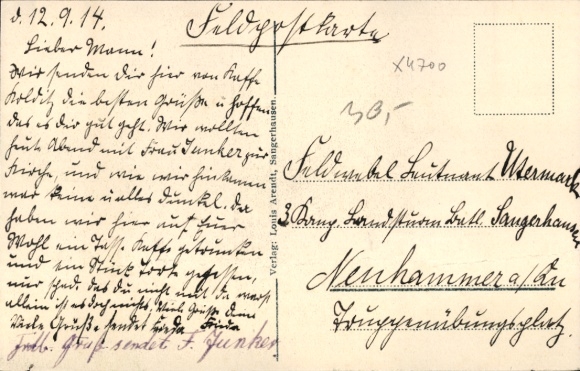 d. 12.9.14.
Feldpostkarte
Lieber Mann!
Wir senden dir hier von Kaffe
Kolditz die besten Grüße u hoffen
das es dir gut geht. Wir wollten
heut Abend mit Frau Junker zur
Kirche, und wie wir hinkamen
war keine u alles dunkel. Da
haben wir hier auf Euer
Wohl ein Tass. Kaffe getrunken
und ein Stück torte gegessen,
nur schad. das du nicht mit da warst
allein ist es doch nichts, Viele Grüße dein
Viele Grüße sendet Frida
Frdl. Gruß sendet F. Junker
Verlag: Louis Arendt, Sangerhausen.
X4700
Feldwebel Leutnant Utermark
3 Komp. Landsturm Batl. Sangerhausen
Neuhammer a/Qu
Truppenübungsplatz.